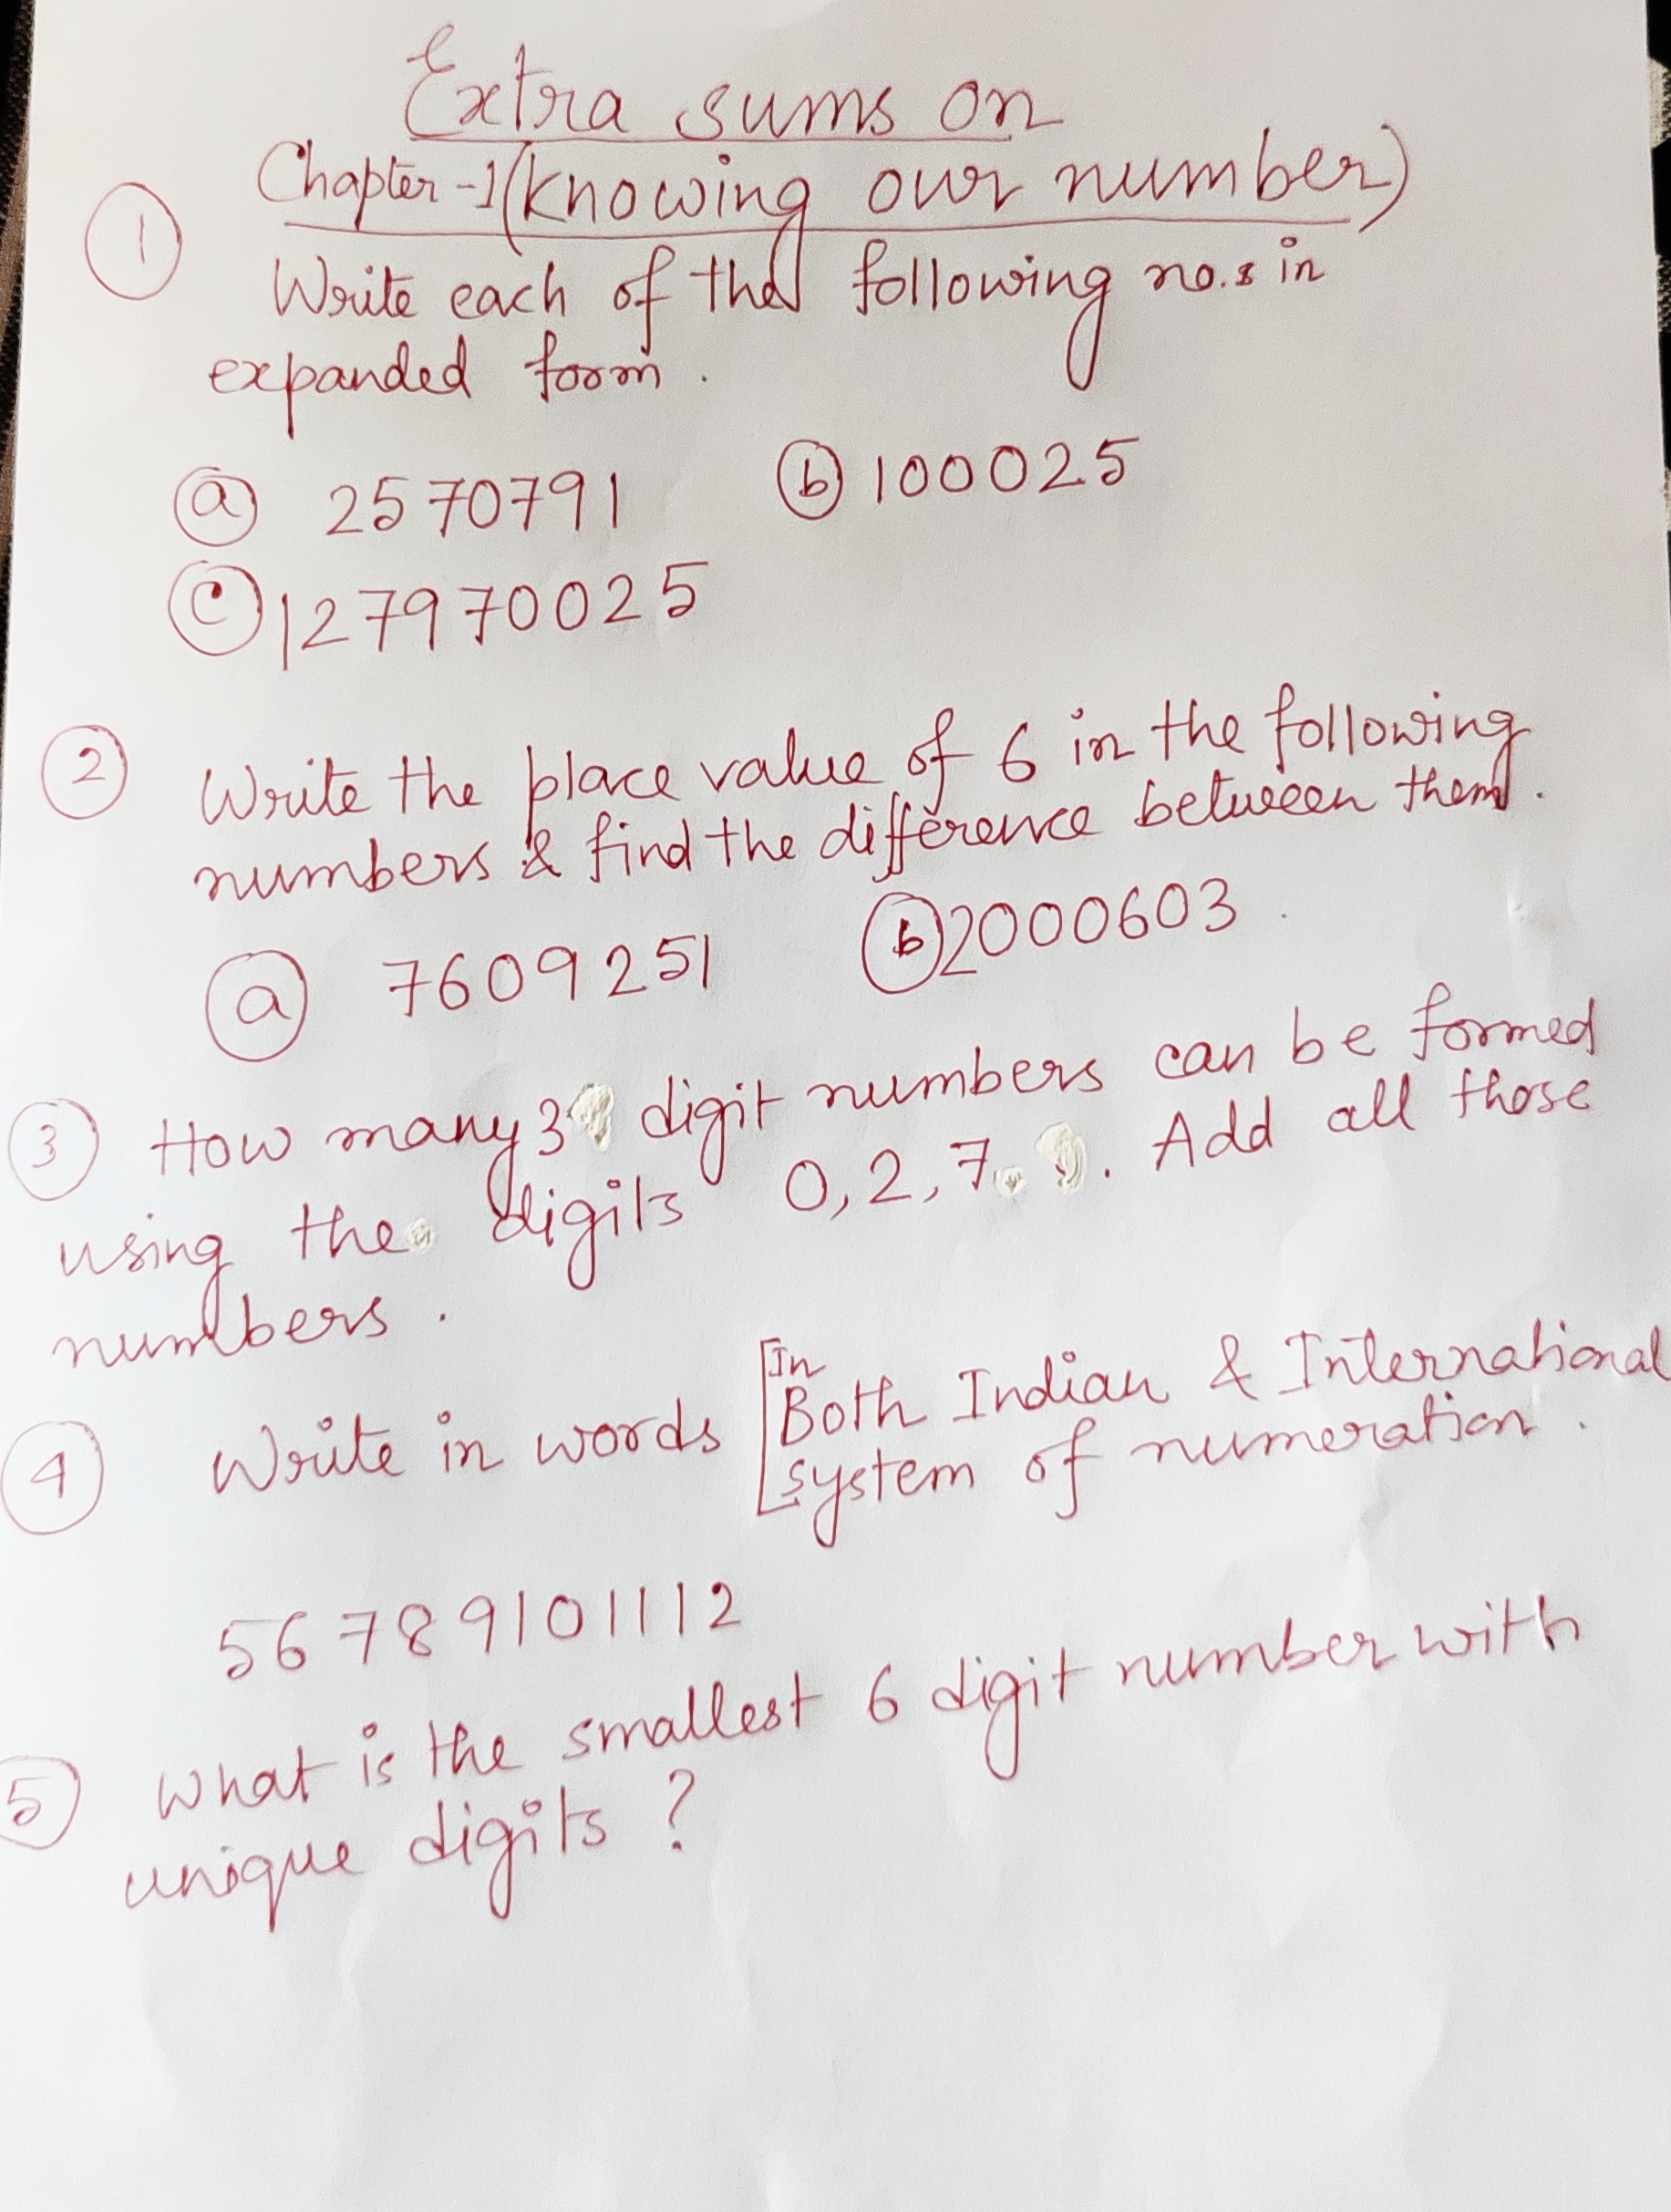 Extra sums on
Chapter-1 (Knowing our number)
① Write each of the following no.s in
expanded form.
ⓐ 2570791 ⓑ 100025
ⓒ 127970025
② Write the place value of 6 in the following
numbers & find the difference between them.
ⓐ 7609251 ⓑ 2000603
③ How many 3 digit numbers can be formed
using the digits 0, 2, 7. Add all those
numbers.
④ Write in words [In Both Indian & International
system of numeration.
56789101112
⑤ What is the smallest 6 digit number with
unique digits?